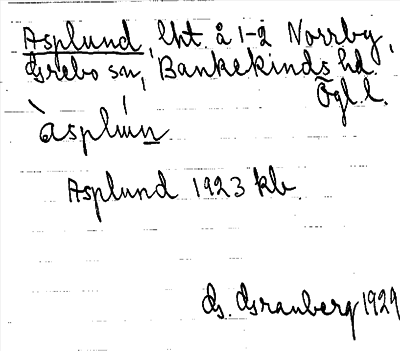 Asplund, lht. å 1-2 Norrby,
Grebo sn, Bankekinds hd.,
Ögl. l.
àsplún
Asplund 1923 kb.
G. Granberg 1929